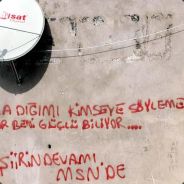 isat
A DIĞIMI KİMSEYE SÖYLEME
R BENİ GÜÇLÜ BİLİYOR....
ŞİİRİN DEVAMI
MSN'DE